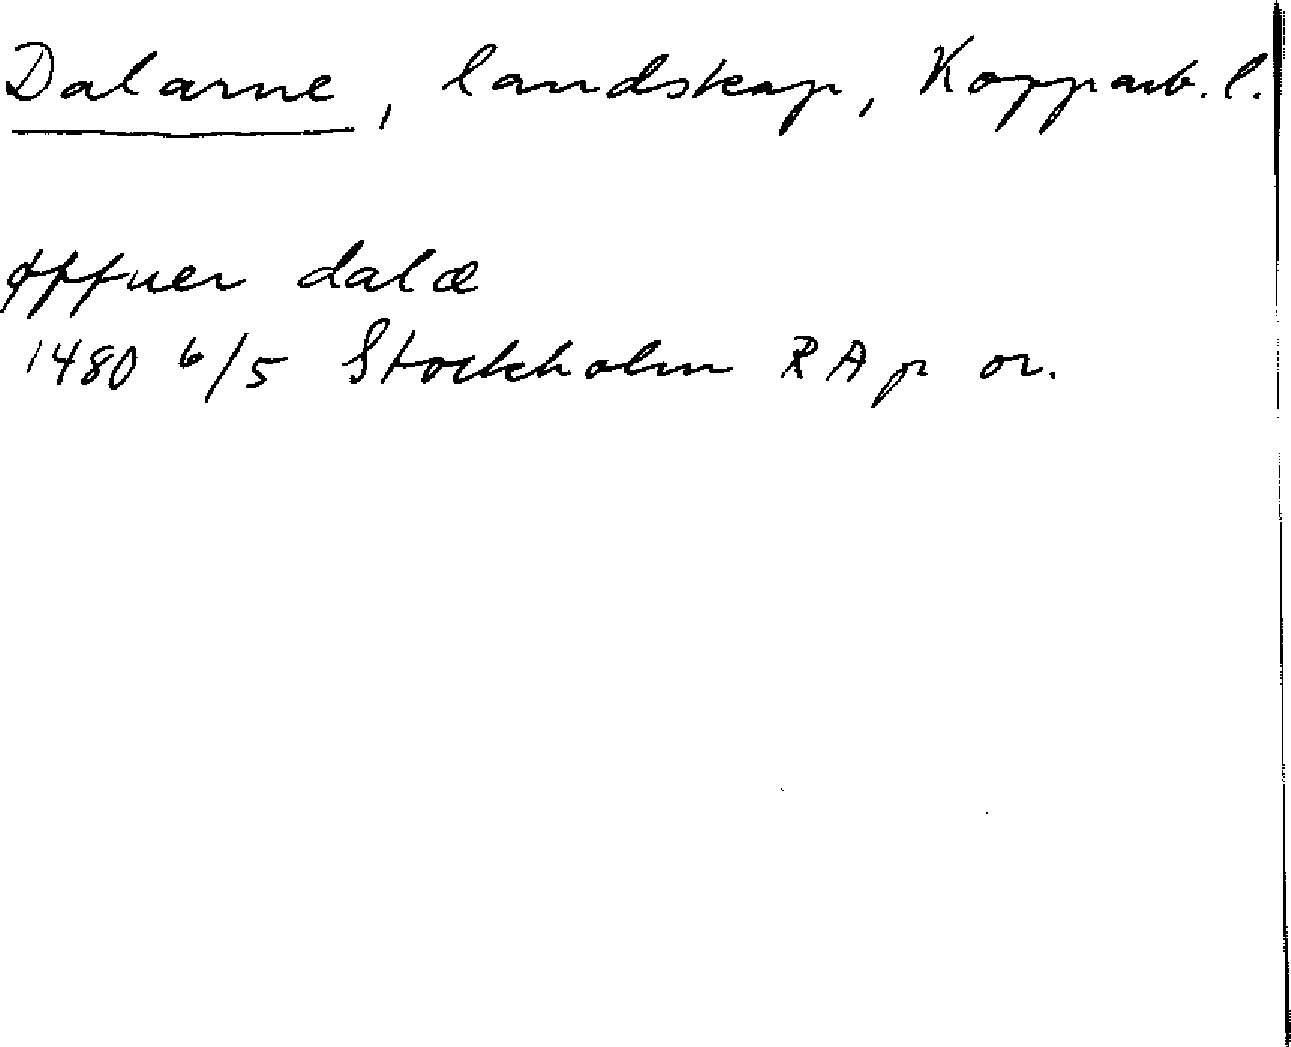 Dalarne, landskap, Kopparb. l.
øffuer dalæ
1480 6/5 Stockholm RAp or.